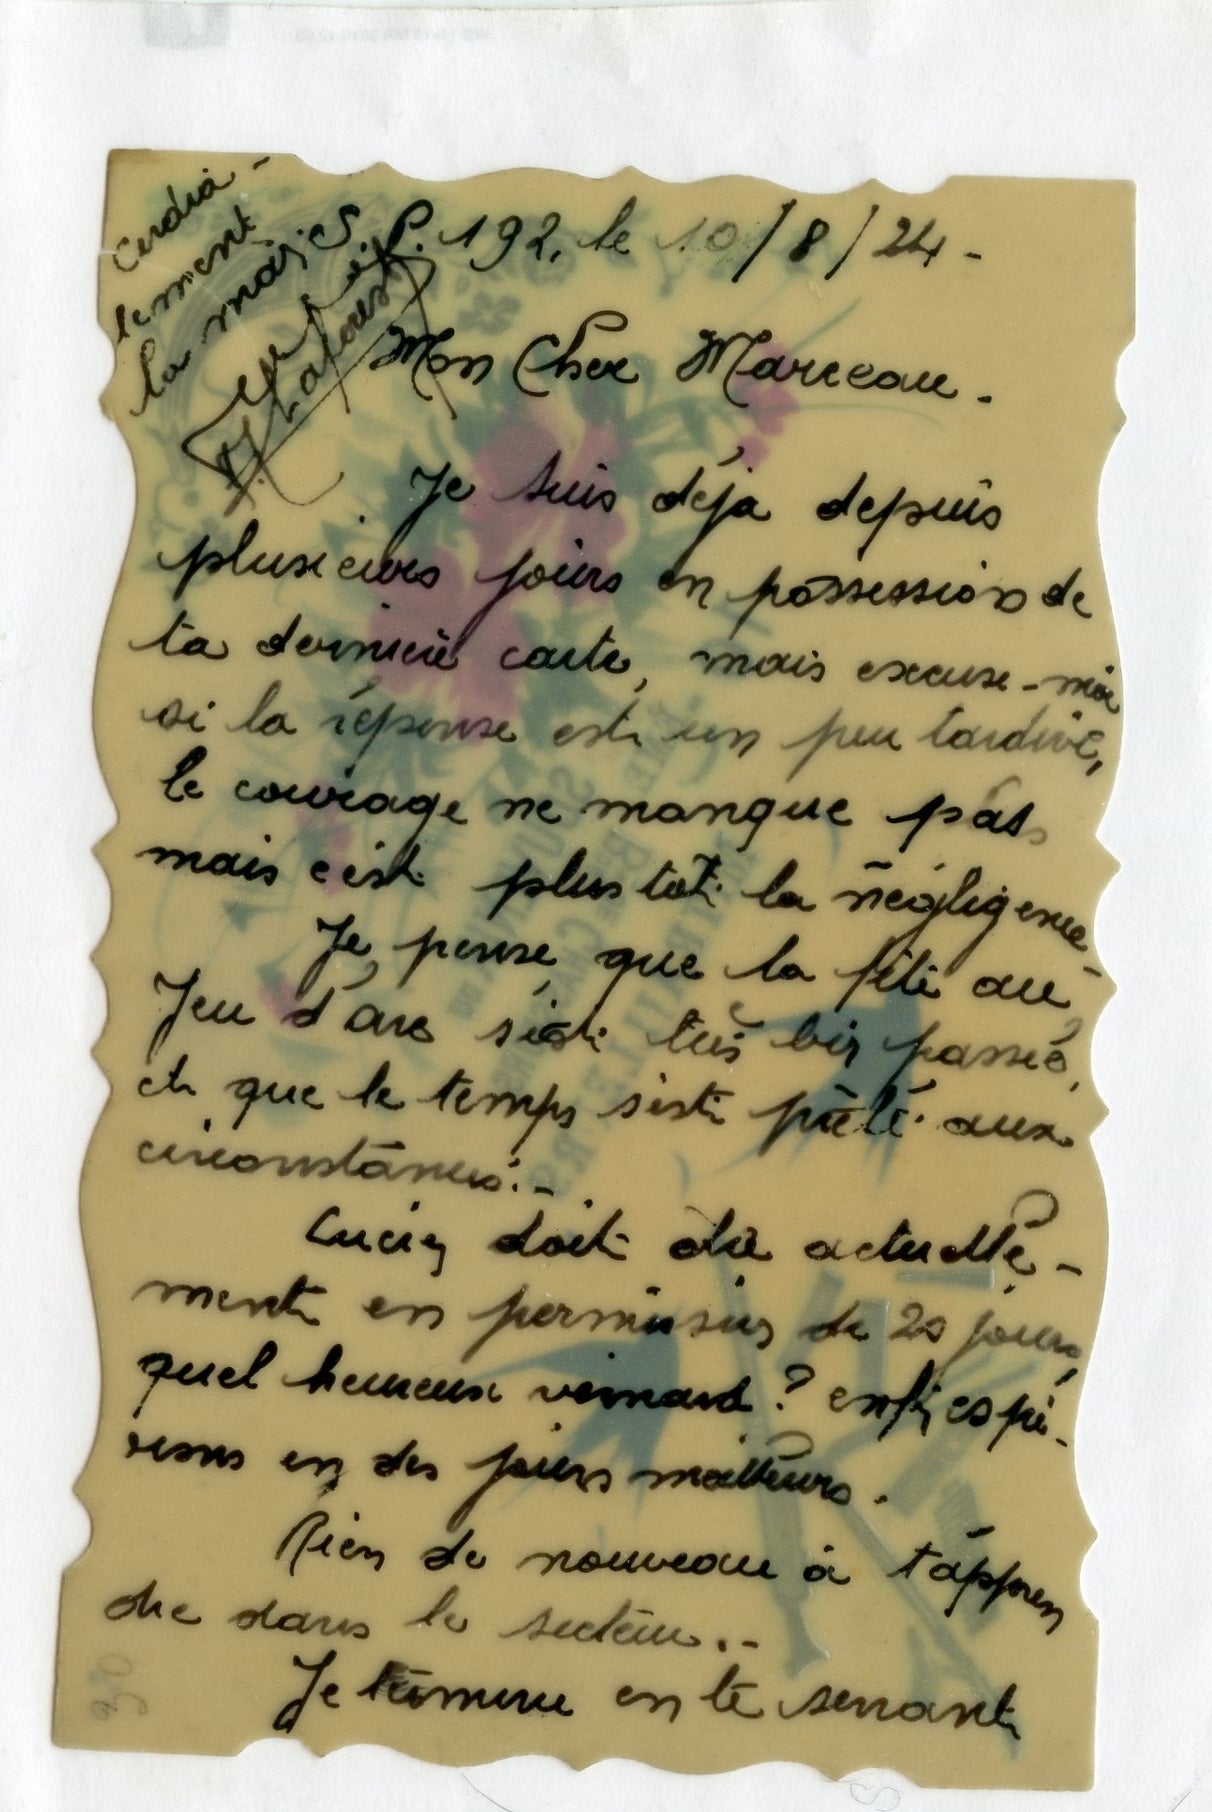 S. P. 192, le 10/8/24 -
Mon Cher Marceau -
Je suis déja depuis
plusieurs jours en possession de
ta dernière carte, mais excuse-moi
si la réponse est un peu tardive,
le courage ne manque pas,
mais c'est plus tôt la négligence -
Je pense que la fête au
Jeu d'arc s'est très bien passée,
et que le temps s'est prêté aux
circonstances. -
Lucien doit être actuelle-
ment en permission de 20 jours,
quel heureux veinard? enfin espé-
rons en des jours meilleurs.
Rien de nouveau à t'appren
dre dans le secteur. -
Je termine en te serrant
Cordia-
lement
la main
30